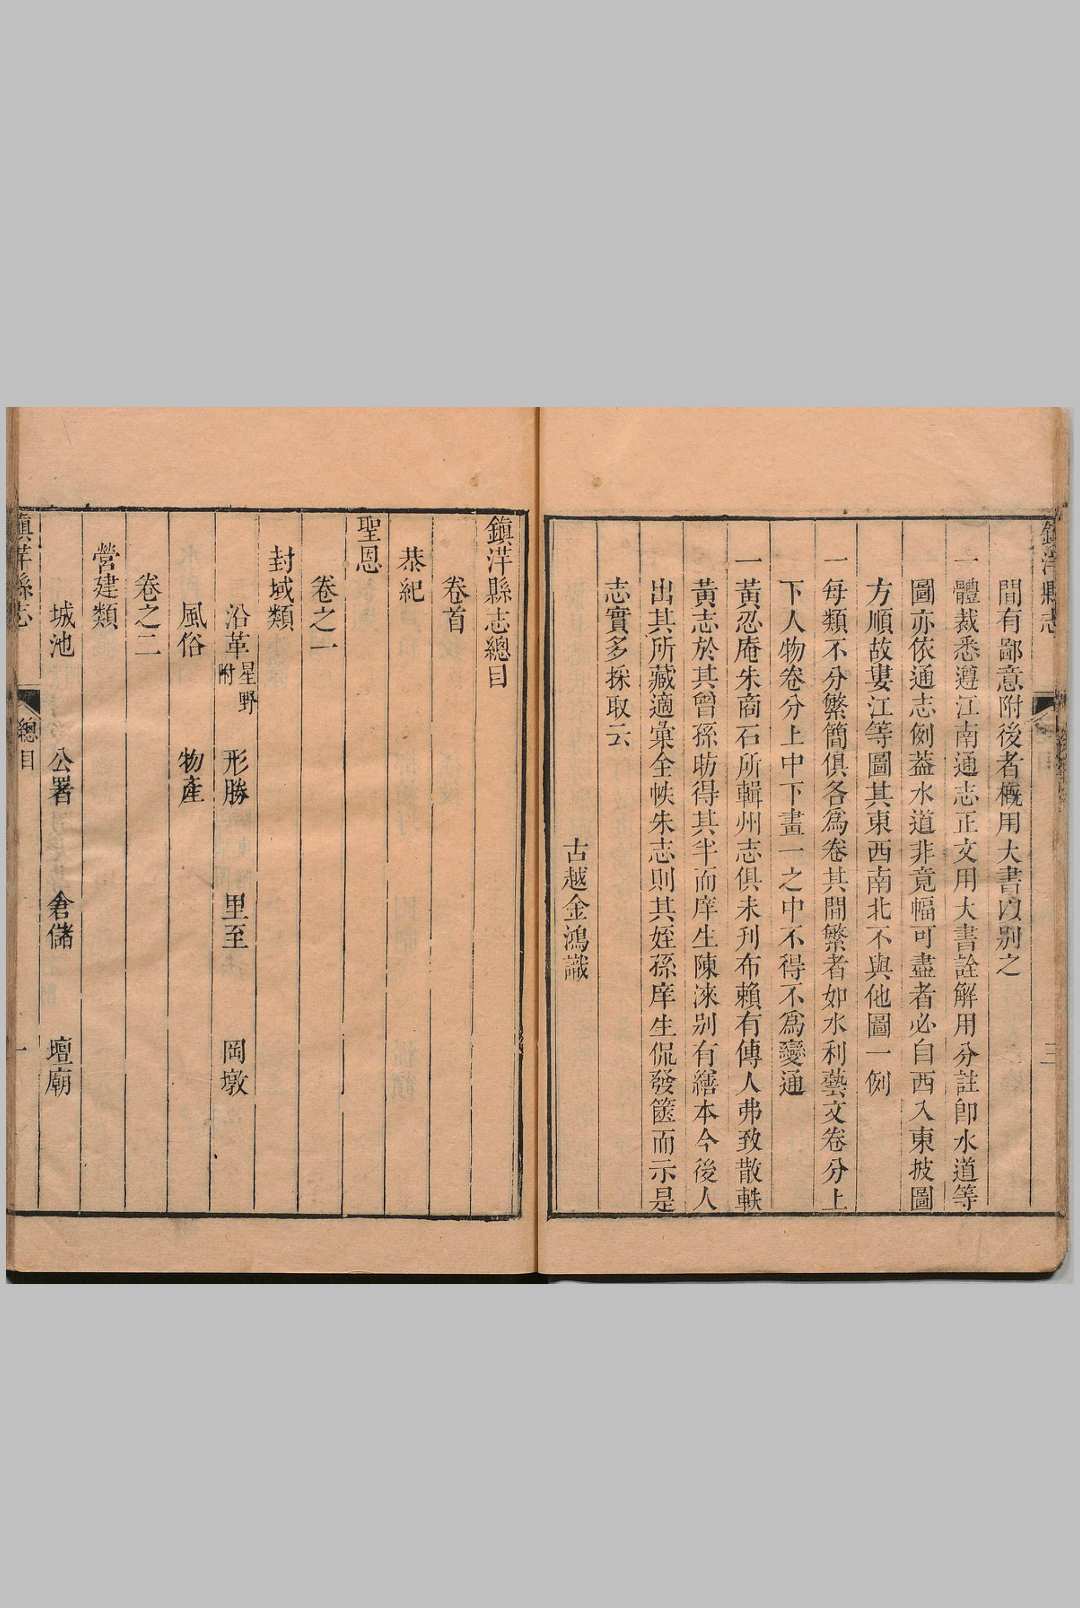 鎮洋縣志
三
間有鄙意附後者槪用大書以别之
一體裁悉遵江南通志正文用大書詮解用分註卽水道等
圖亦依通志例葢水道非竟幅可盡者必自西入東披圖
方順故婁江等圖其東西南北不與他圖一例
一每類不分繁簡俱各爲卷其間繁者如水利藝文卷分上
下人物卷分上中下畫一之中不得不爲變通
一黃忍庵朱商石所輯州志俱未刋布賴有傳人弗致散軼
黃志於其曾孫昉得其半而庠生陳淶别有繕本今後人
出其所藏適彙全帙朱志則其姪孫庠生侃發篋而示是
志實多採取云
古越金鴻識
鎮洋縣志總目
卷首
恭紀
聖恩
卷之一
封域類
沿革星野附 形勝 里至 岡墩
風俗 物產
卷之二
營建類
城池 公署 倉儲 壇廟
鎮洋縣志 總目 一